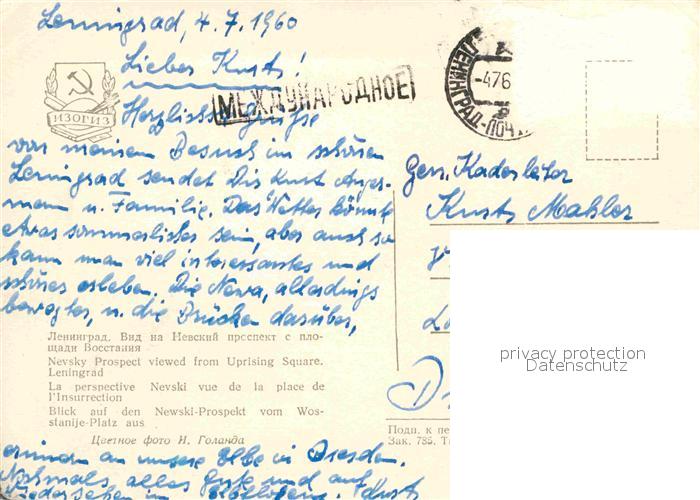 Leningrad, 4.7.1960
Lieber Kurt!
МЕЖДУНАРОДНОЕ
ЛЕНИНГРАД-ПОЧТ
-476
ИЗОГИЗ
Herzlichste Grüsse
von meinem Besuch im schönen
Leningrad sendet Dir Kurt Anger-
mann u. Familie. Das Wetter könnte
etwas sommerlicher sein, aber auch so
kann man viel interessantes und
schönes erleben. Die Newa, allerdings
bewegter, u. die Brücken darüber,
Ленинград. Вид на Невский проспект с пло-
щади Восстания
Nevsky Prospect viewed from Uprising Square.
Leningrad
La perspective Nevski vue de la place de
l'Insurrection
Blick auf den Newski-Prospekt vom Wos-
stanije-Platz aus
Цветное фото И. Голанда
erinnern an unsere Elbe in Dresden.
Nochmals alles gute und auf
Wiedersehen im Kurt
Gen. Kaderleiter
Kurt Mahler
D
Подп. к пе
Зак. 785. Ти
privacy protection
Datenschutz